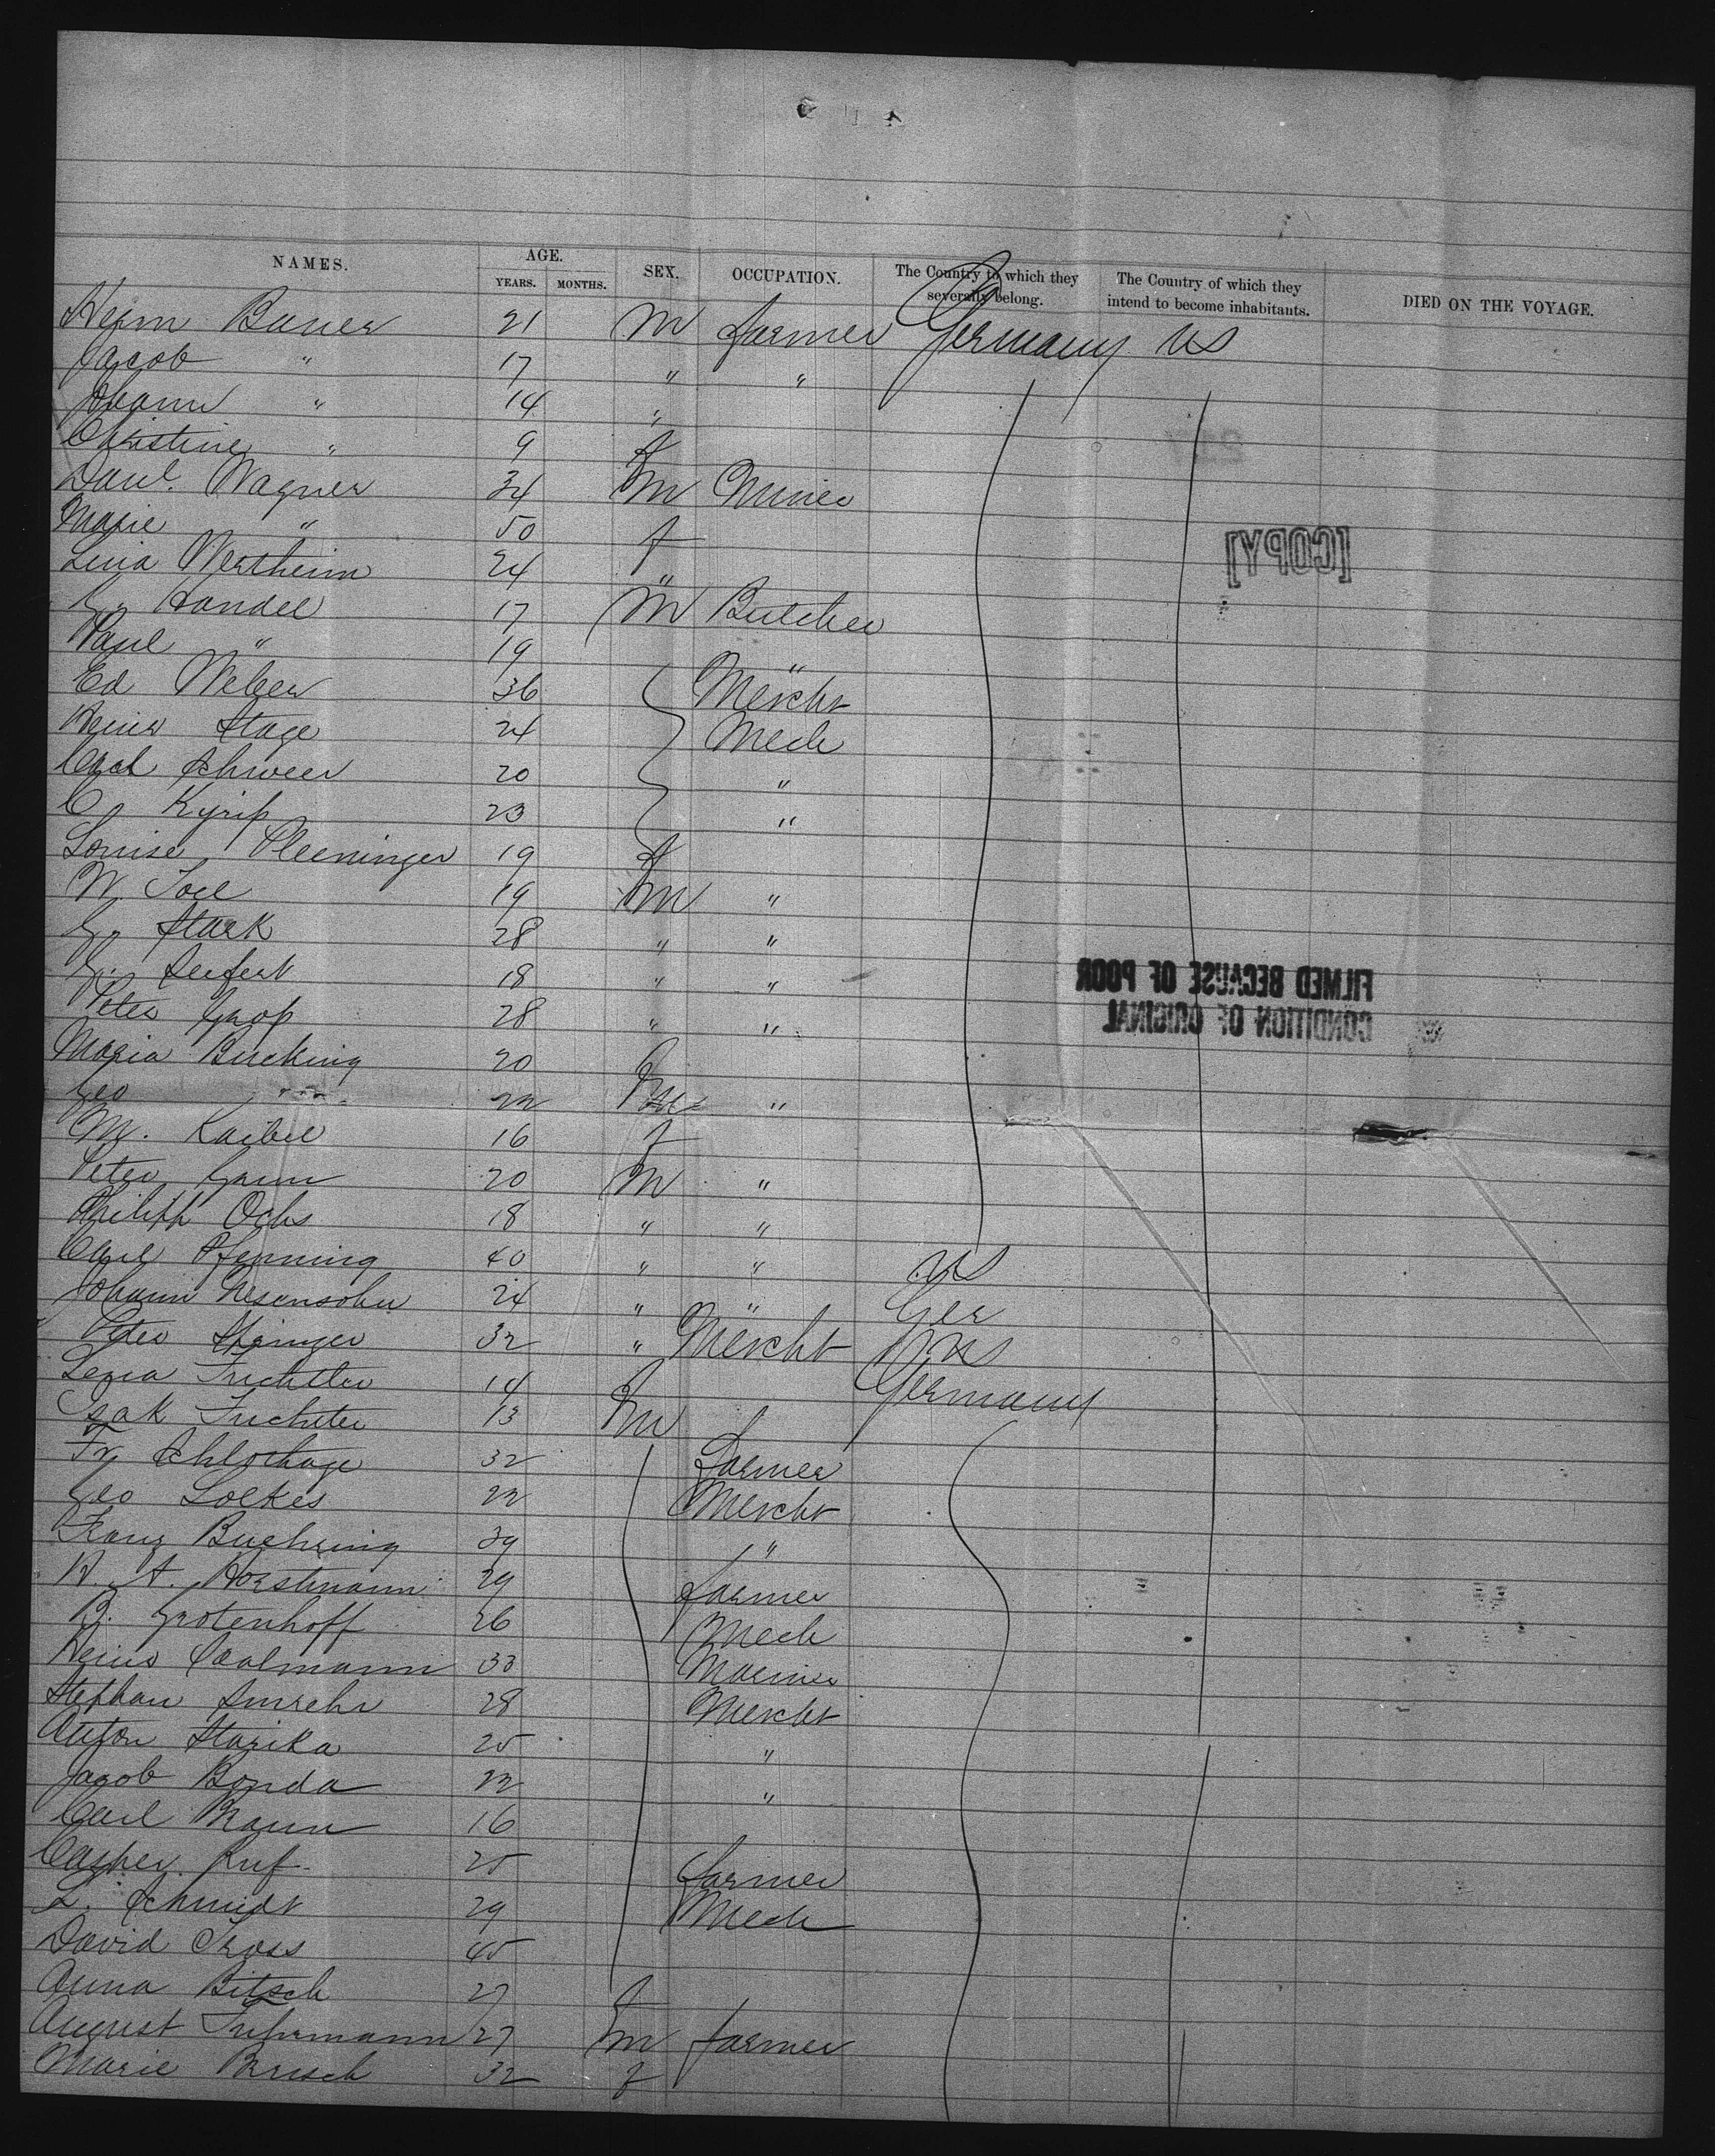 NAMES. AGE. SEX. OCCUPATION. The Country to which they severally belong. The Country of which they intend to become inhabitants. DIED ON THE VOYAGE.
YEARS. MONTHS.
Herm Bauer 21 m farmer Germany US
Jacob " 17 " "
Johann " 14 "
Christine " 9 f
Danl. Wagner 34 m Miner
Marie " 50 f
Lina Wertheim 24 "
G. Handel 17 m Butcher
Paul " 19 "
Ed Weber 36 Mercht
Heinr Stage 24 Mech
Carl Schweer 20 "
C. Kyrip 23 "
Louise Pleeninger 19 f
W. Joel 19 m "
G. Stark 28 " "
G. Seifert 18 " "
Peter Grop 28 " "
Maria Bucking 20 f
Geo " 22 m "
M. Kaibel 16 f
Peter Gaum 20 m "
Philipp Ochs 18 " "
Carl Pfenning 40 " " US
Johann Nesensohn 24 " " Ger
Peter Springer 32 " Mercht US
Lena Fuchtler 14 f Germany
Isak Fuchtler 13 m
Fr. Schlochage 32 Farmer
Geo Loekes 22 Mercht
Franz Buehring 39 "
H. A. Horstmann 29 farmer
B. Grotenhoff 26 Mech
Heinr Coalmann 33 Mariner
Stephan Imrehr 28 Mercht
Anton Starika 25 "
Jacob Bonda 22 "
Carl Braun 16
Casper Ruf 25 farmer
L. Schmidt 29 Mech
David Tross 45
Anna Bitsch 27 f
August Fuhrmann 27 m farmer
Marie Brusch 32 f
[COPY]
FILMED BECAUSE OF POOR
CONDITION OF ORIGINAL